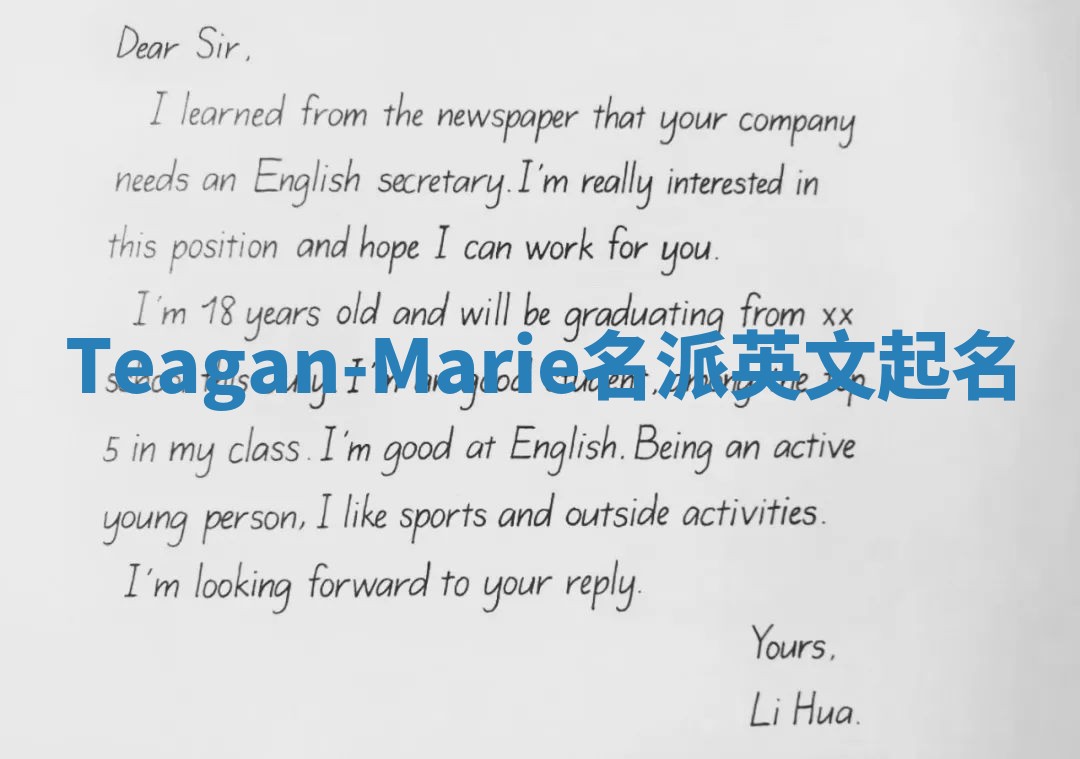 Dear Sir,
I learned from the newspaper that your company
needs an English secretary. I'm really interested in
this position and hope I can work for you.
I'm 18 years old and will be graduating from xx
Teagan-Marie名派英文起名
school this July. I'm a good student, among the top
5 in my class. I'm good at English. Being an active
young person, I like sports and outside activities.
I'm looking forward to your reply.
Yours,
Li Hua.